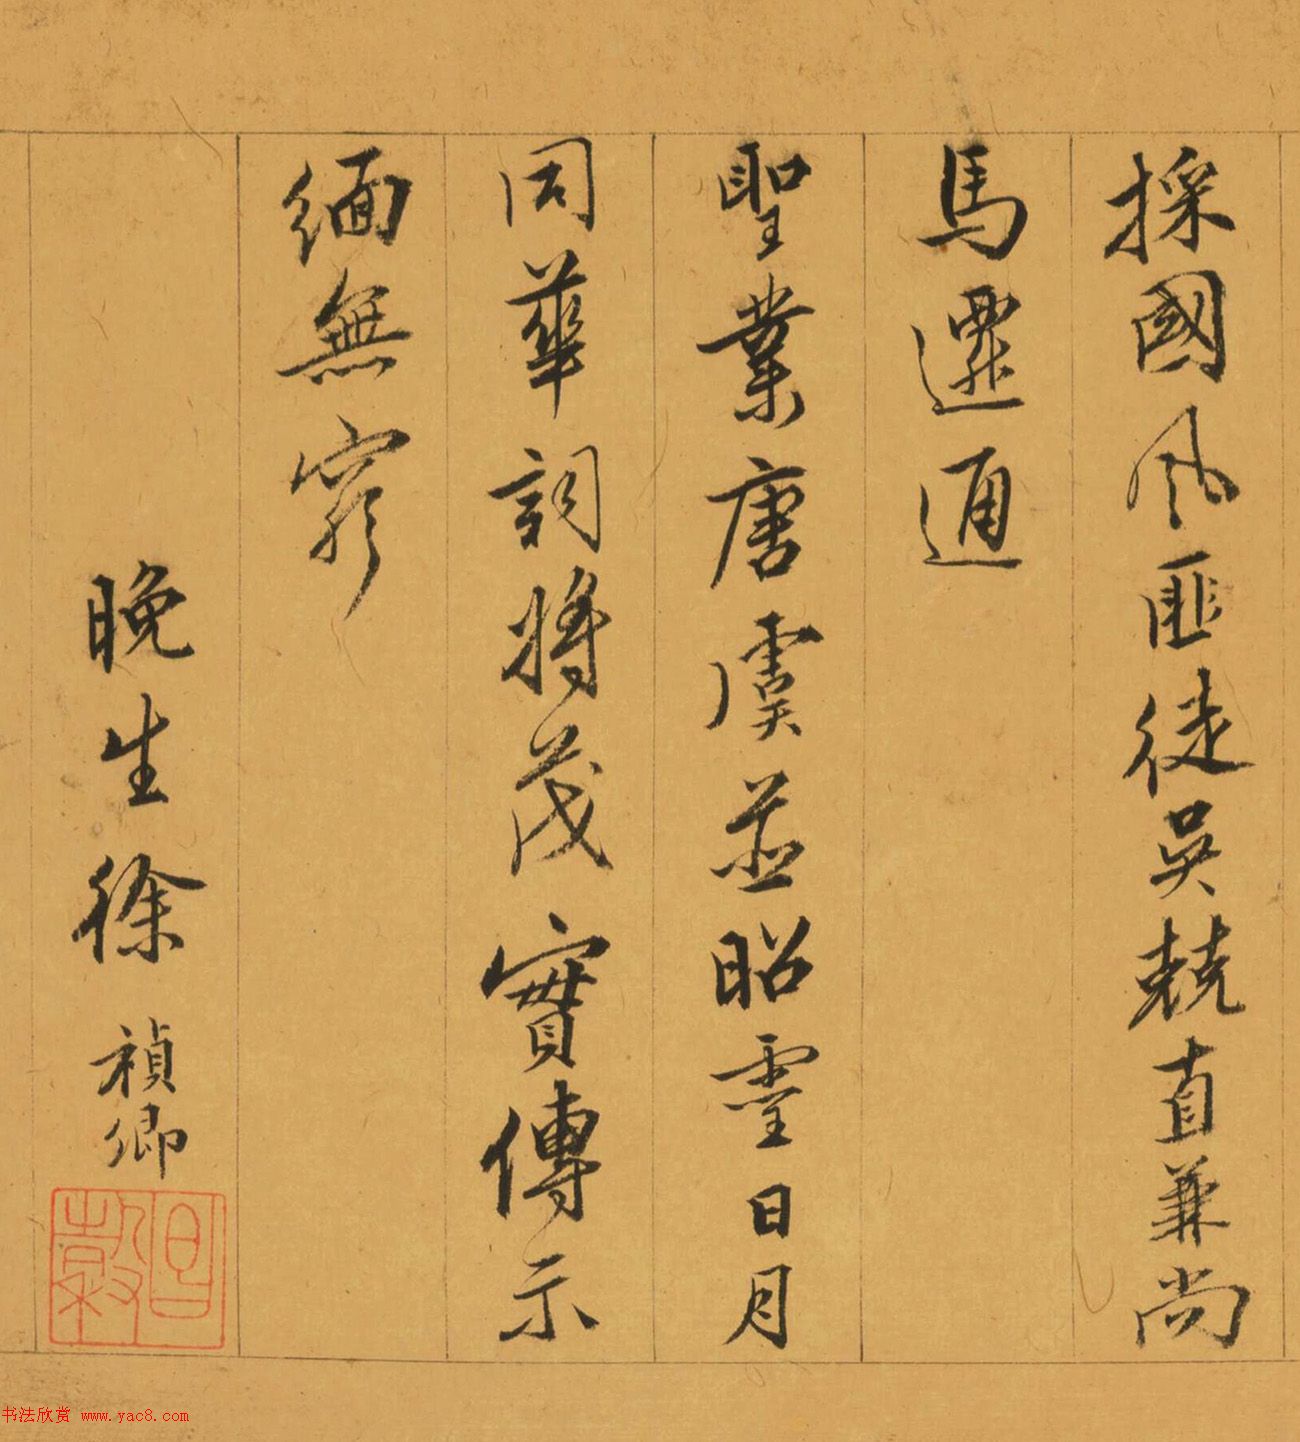 採國風匪徒吳兢直兼尚
馬遷通
聖業唐虞並昭靈日月
同華詞將茂實傳示
緬無窮
晚生徐禎卿
昌穀
书法欣赏 www.yac8.com